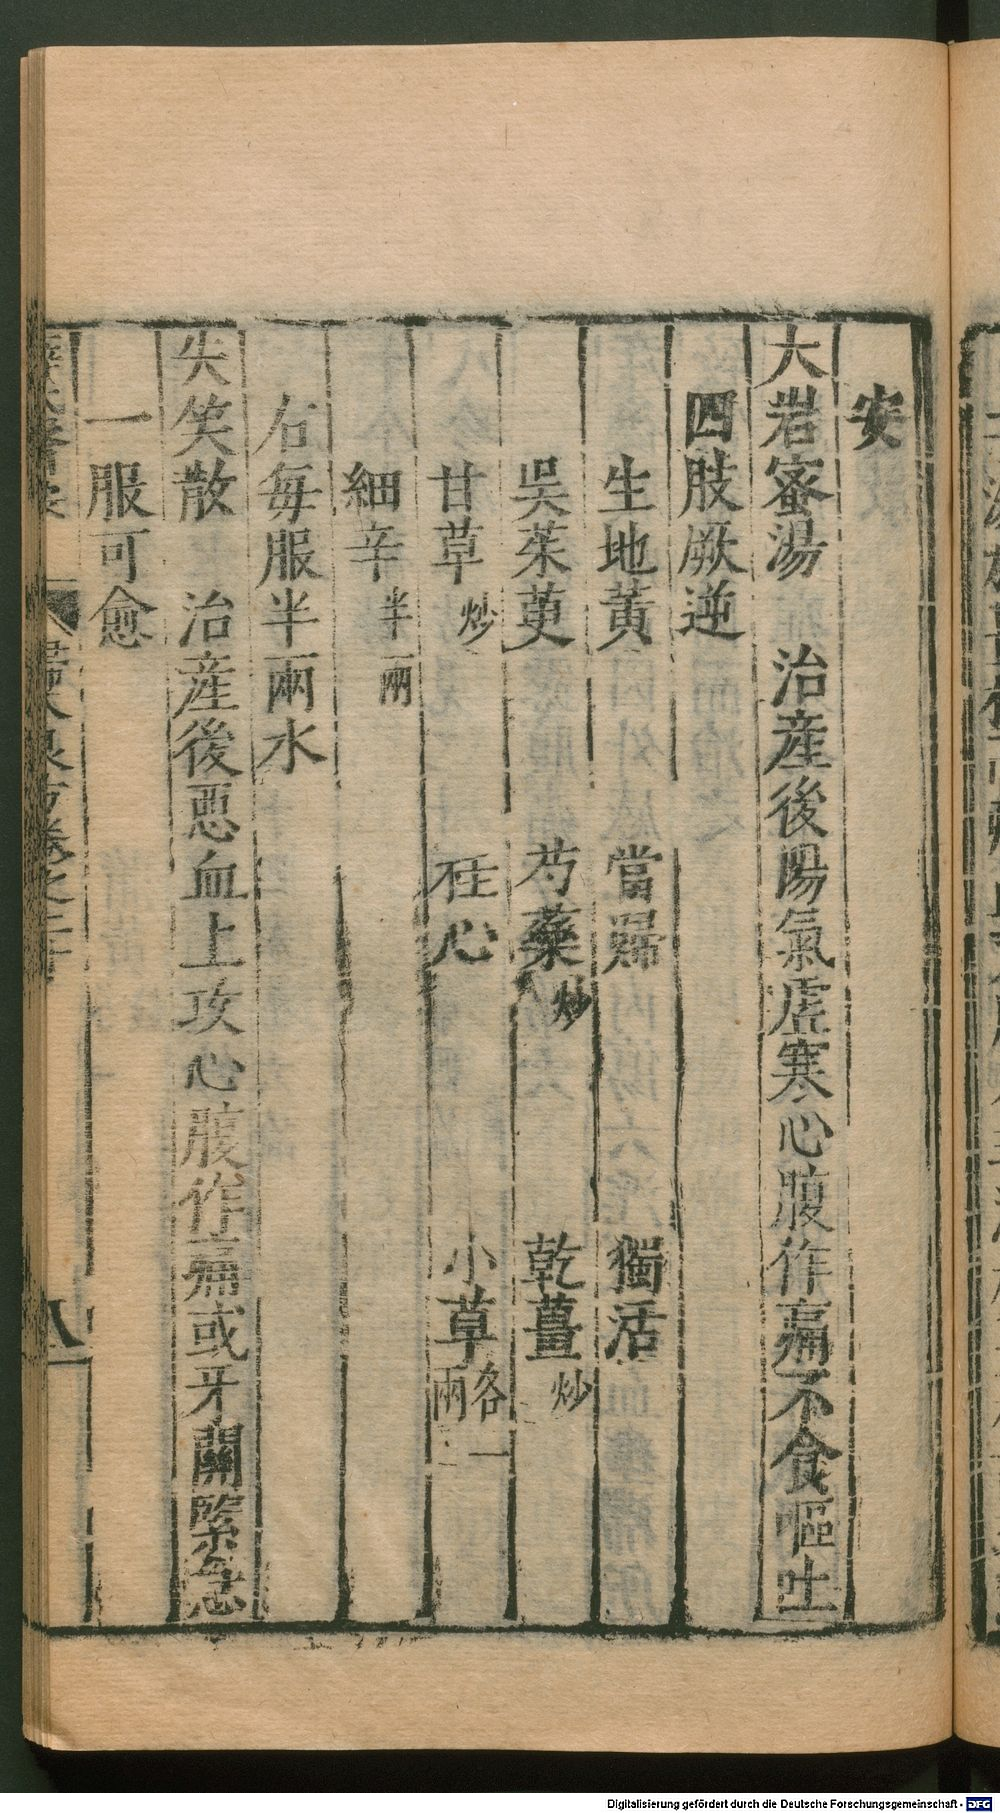 安
大岩蜜湯　治産後陽氣虛寒心腹作痛不食嘔吐
四肢厥逆
生地黃　當歸　獨活
吳茱萸　芍藥炒　乾薑炒
甘草炒　桂心　小草各一兩
細辛半兩
右每服半兩水
失笑散　治産後惡血上攻心腹作痛或牙關緊急
一服可愈
婦人良方卷之二十
八
Digitalisierung gefördert durch die Deutsche Forschungsgemeinschaft - DFG